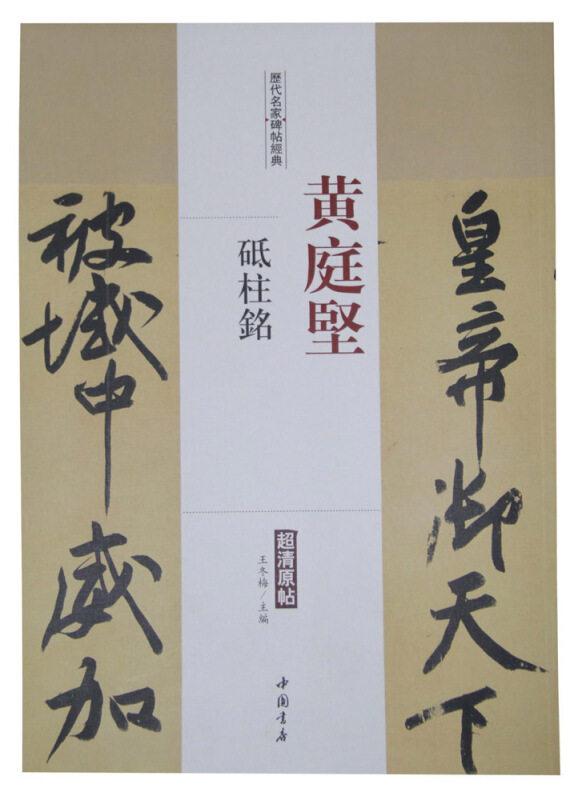 皇帝御天下
黄庭堅
歷代名家碑帖經典
砥柱銘
超清原帖
王冬梅/主編
中国书店
被域中威加